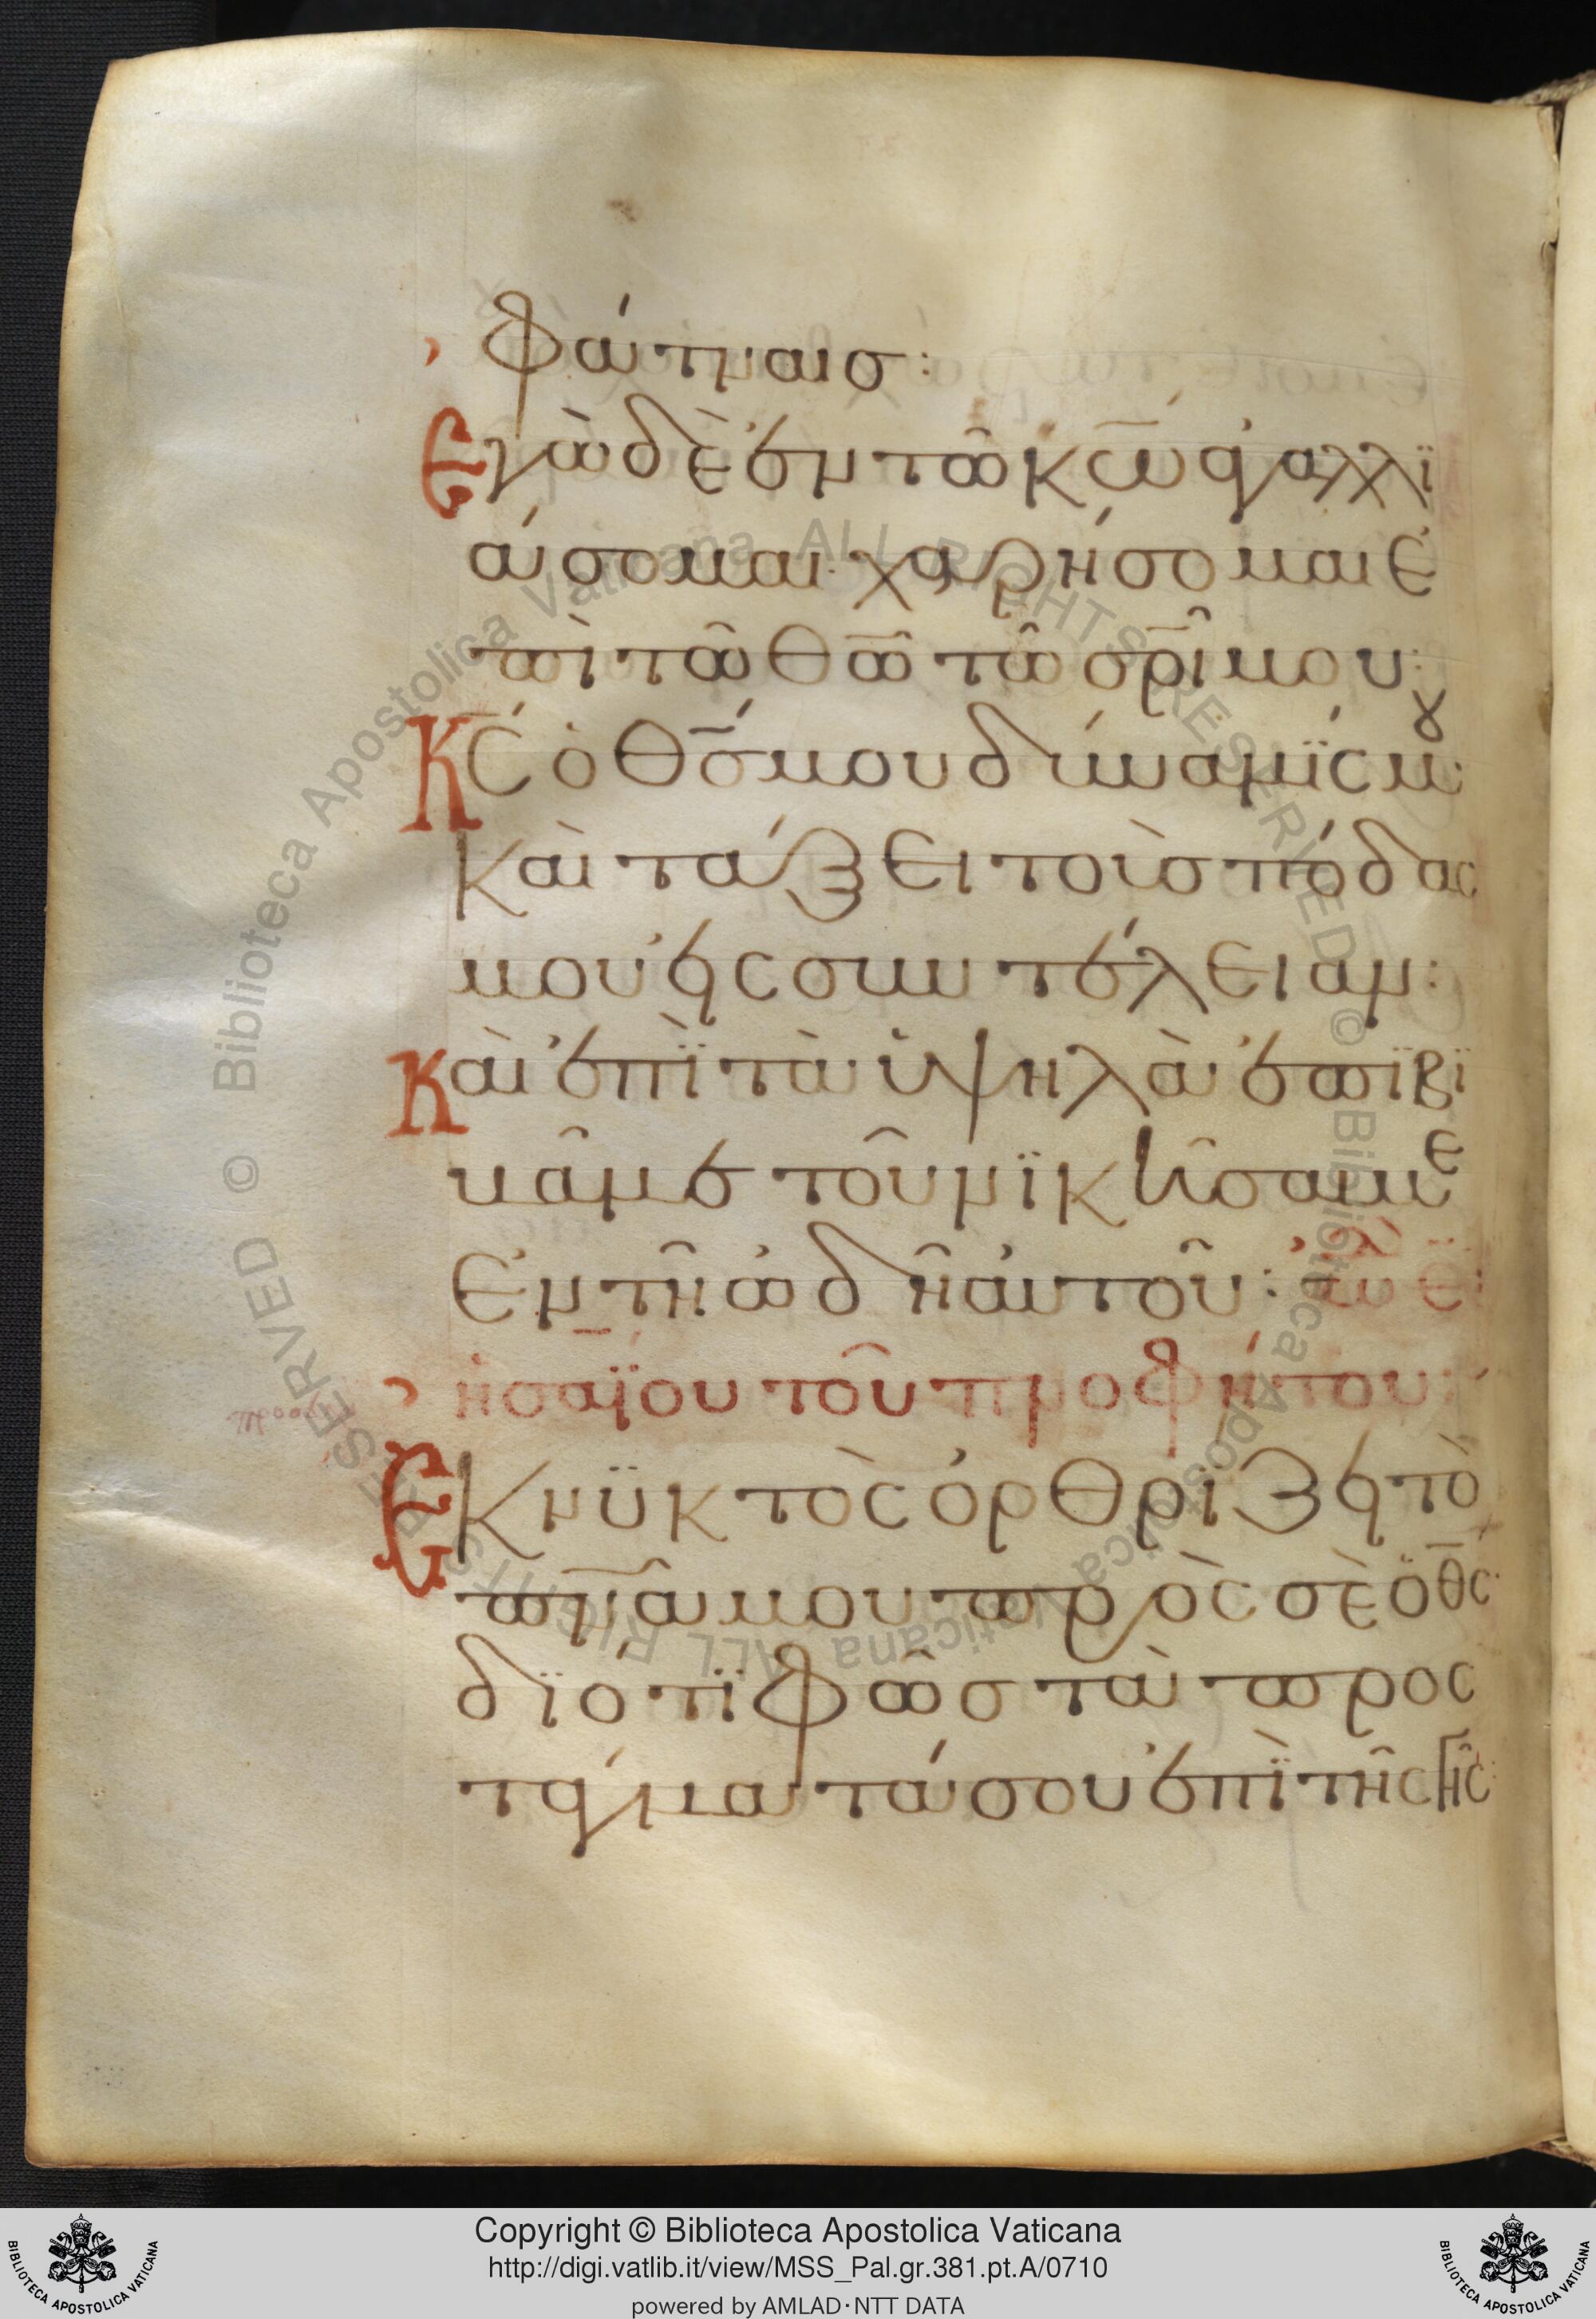 φάτναισ:
Εγὼ δὲ ἐν τῶ κ̅ω̅ ἀγαλλϊ
άσομαι· χαρήσομαι ἐ
πὶ τῶ θ̅ω̅ τῶ σ̅ρ̅ι̅ μου:
Κ̅ς̅ ὁ θ̅σ̅ μου δύναμϊς μου:
Καὶ τάξει τοὺσ πόδας
μου εἰς συντέλειαν:
Καὶ ἐπῒ τὰ ὑψηλὰ ἐπϊβϊ
βᾶ με τοῦ νϊκῆσαι με
ἐν τῆ ὠδῆ αὐτοῦ: ὠδ ε
ἠσαΐου τοῦ προφήτου:
Εκ νϋκτὸς ὀρθρϊζει τὸ
π̅ν̅α̅ μου πρὸς σὲ ὁ θ̅ς̅·
δϊότϊ φῶσ τὰ προς
τάγματά σου ἐπῒ τῆς γῆς:
Copyright © Biblioteca Apostolica Vaticana
http://digi.vatlib.it/view/MSS_Pal.gr.381.pt.A/0710
powered by AMLAD·NTT DATA
BIBLIOTECA APOSTOLICA VATICANA
BIBLIOTECA APOSTOLICA VATICANA
© Biblioteca Apostolica Vaticana ALL RIGHTS RESERVED
© Biblioteca Apostolica Vaticana ALL RIGHTS RESERVED